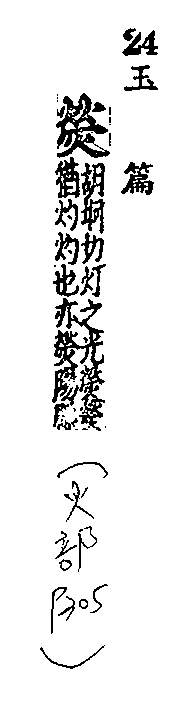 24
玉篇
熒
胡坰切灯之光熒熒
猶灼灼也亦熒陽
(火部
P305)